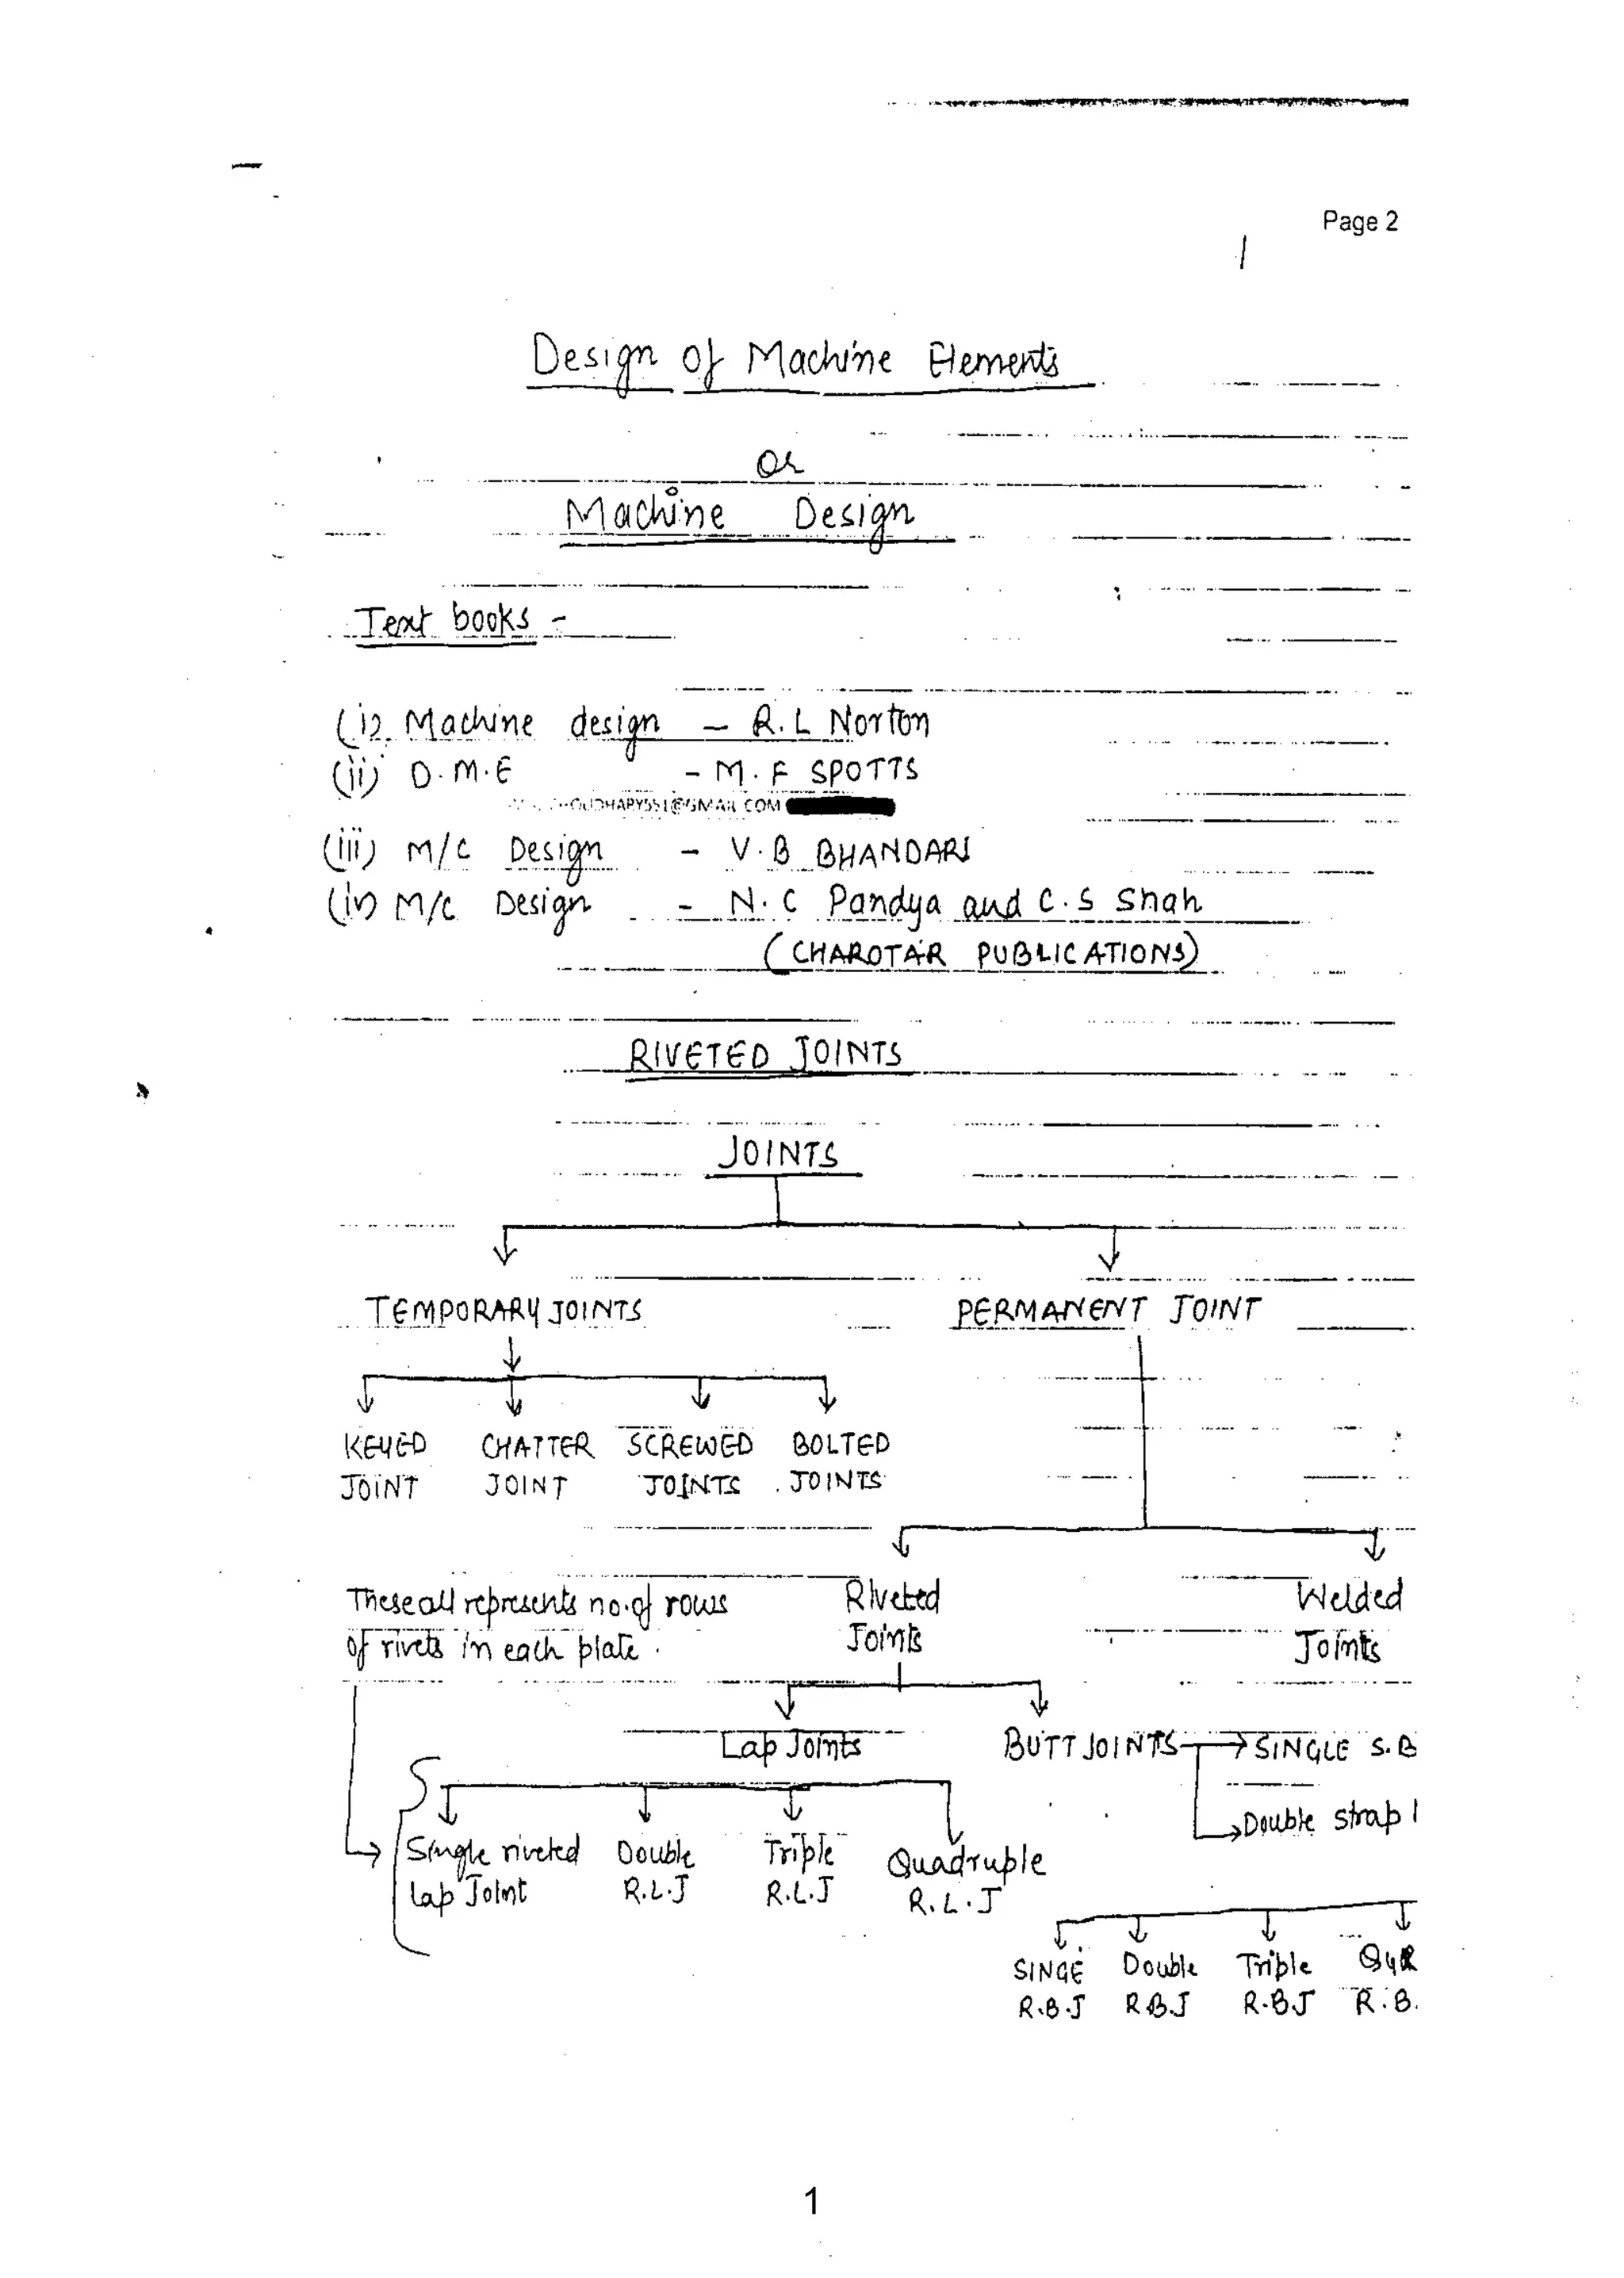 Page 2
1
Design of Machine Elements
Or
Machine Design
Text books -
(i) Machine design - R.L Norton
(ii) D.M.E - M.F SPOTTS
(iii) M/C Design - V.B BHANDARI
(iv) M/C Design - N.C Pandya and C.S Shah
(CHAROTAR PUBLICATIONS)
RIVETED JOINTS
JOINTS
TEMPORARY JOINTS PERMANENT JOINT
KEYED CHATTER SCREWED BOLTED
JOINT JOINT JOINTS JOINTS
These all represents no. of rows Riveted Welded
of rivets in each plate. Joints Joints
Lap Joints BUTT JOINTS SINGLE S.B
Double strap
Single riveted Double Triple Quadruple
Lap Joint R.L.J R.L.J R.L.J
SINGE Double Triple
R.B.J R.B.J R.B.J R.B.
1